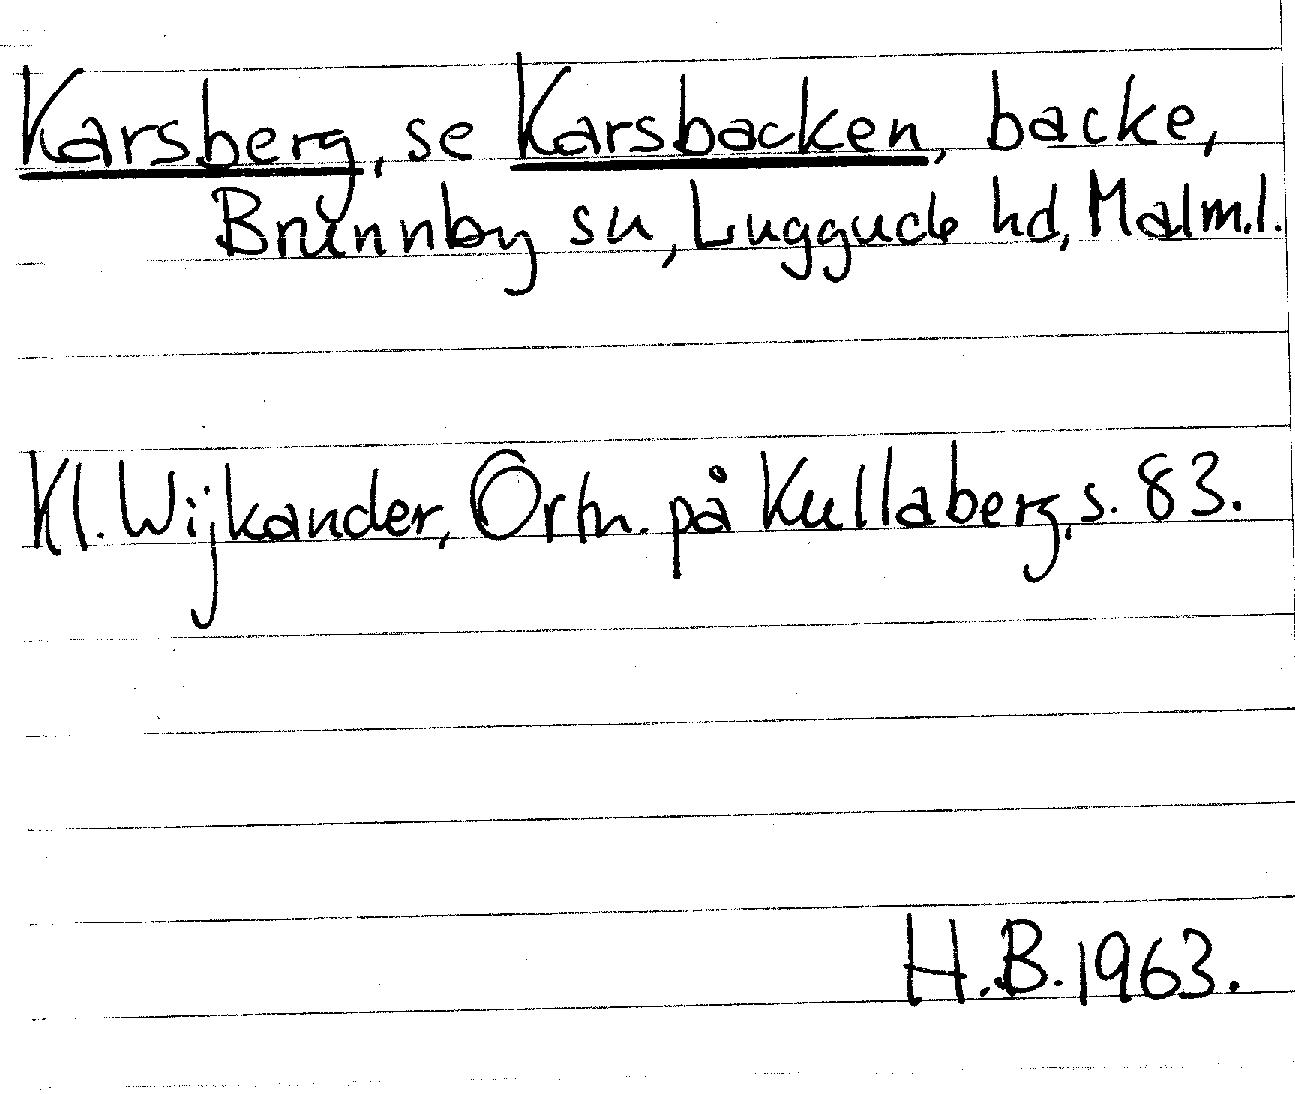 Karsberg, se Karsbacken, backe,
Brunnby sn, Luggude hd, Malm.l.
Kl. Wijkander, Ortn. på Kullaberg, s. 83.
H.B. 1963.